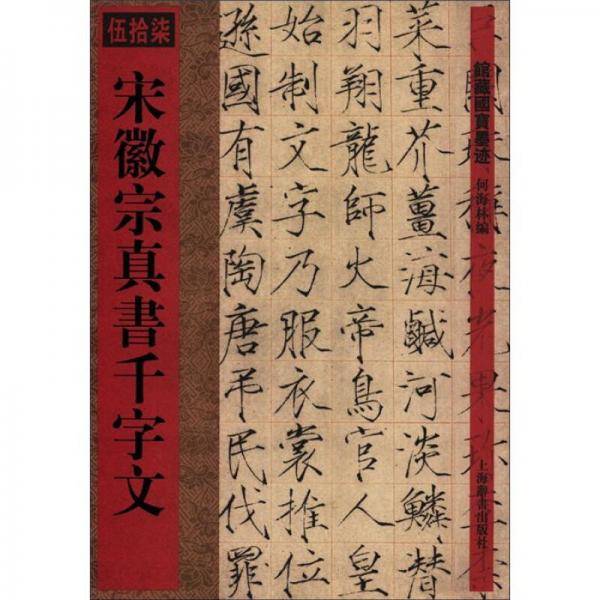 伍拾柒
宋徽宗真書千字文
館藏國寶墨迹
何海林編
上海辭書出版社
巨闕珠稱夜光果珍李柰
菜重芥薑海鹹河淡鱗潛
羽翔龍師火帝鳥官人皇
始制文字乃服衣裳推位
遜國有虞陶唐吊民伐罪